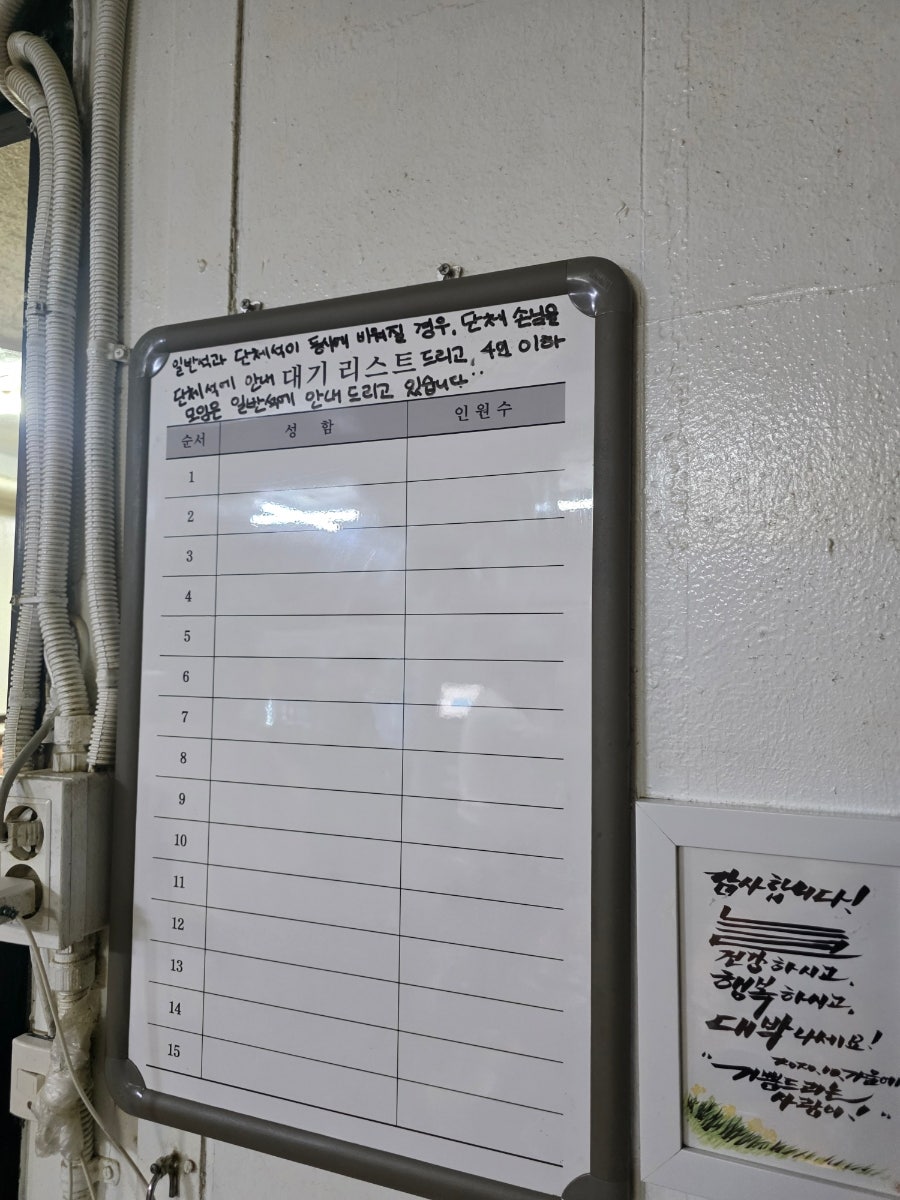 일반석과 단체석이 동시에 비워질 경우, 단체 손님을
단체석에 안내 대기 리스트 드리고, 4인 이하
모임은 일반석에 안내 드리고 있습니다..
순서 성 함 인 원 수
1
2
3
4
5
6
7
8
9
10
11
12
13
14
15
감사합니다!
건강하시고,
행복하시고,
대박나세요!
2020.10.가을에
"기쁨드리는
사람이!"